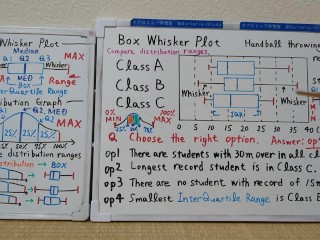 Whisker Plot
Median
Q1 Q2 Q3
MAX
Whisker
Q1 MED Q3
Range
BOX
InterQuartile Range
bution Graph
MED
MAX
25% 25% 25% 25%
e distribution ranges
istribution → BOX
Box Whisker Plot
Handball throwing
Compare distribution ranges.
Class A
Class B
Class C
Whisker
Whisker
IQR
0% 100%
MIN MAX
25% 25%
0 5 10 15 20 25 30 35 40
Q Choose the right option. Answer: op
op1 There are students with 30m over in all cl
op2 Longest record student is in Class C.
op3 There are no student with record of 15m
op4 Smallest InterQuartile Range is Class B